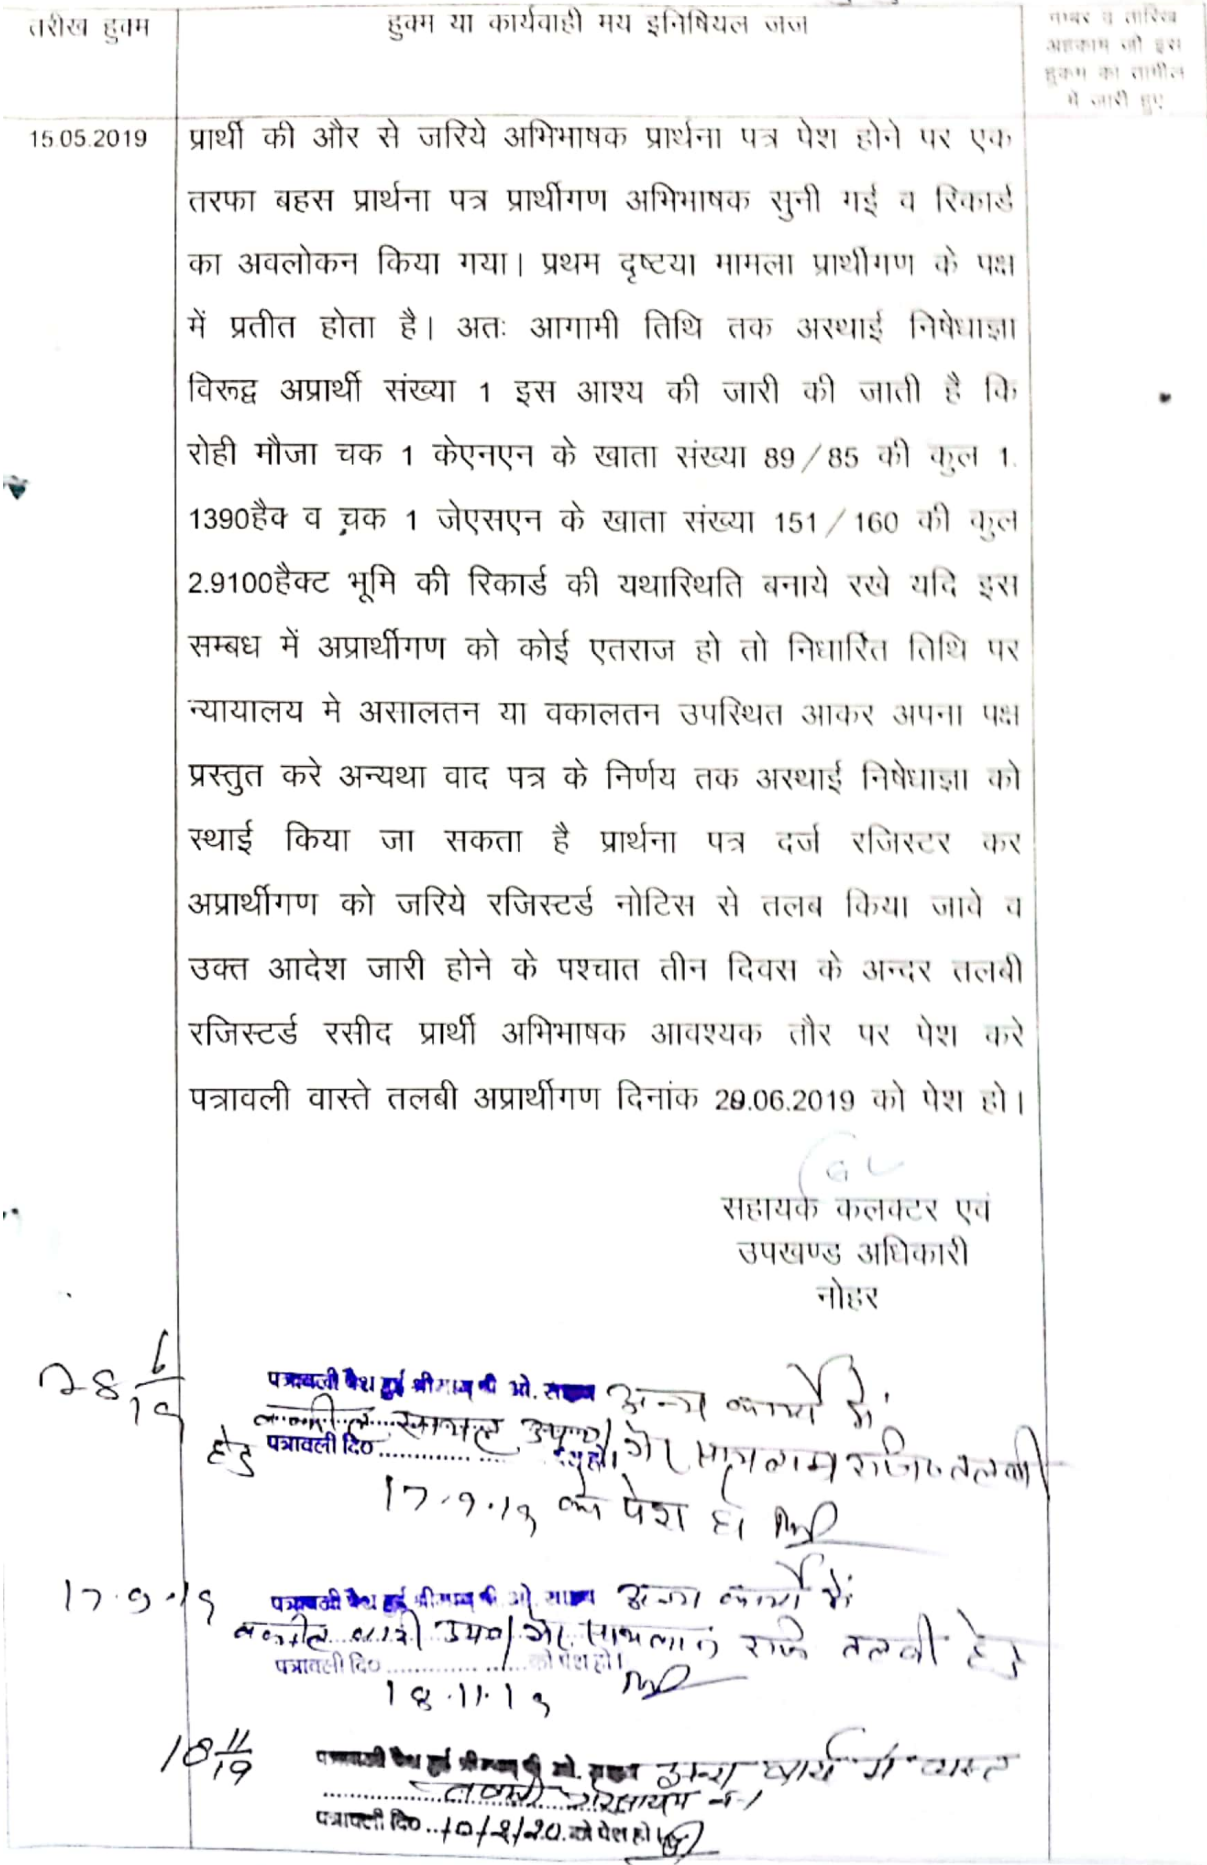 तरीख हुक्म
हुक्म या कार्यवाही मय इनिषियल जज
नम्बर व तारिख
अहकाम जो इस
हुकम का तामील
में जारी हुए
15.05.2019
प्रार्थी की और से जरिये अभिभाषक प्रार्थना पत्र पेश होने पर एक
तरफा बहस प्रार्थना पत्र प्रार्थीगण अभिभाषक सुनी गई व रिकार्ड
का अवलोकन किया गया। प्रथम दृष्टया मामला प्रार्थीगण के पक्ष
में प्रतीत होता है। अतः आगामी तिथि तक अस्थाई निषेधाज्ञा
विरूद्व अप्रार्थी संख्या 1 इस आश्य की जारी की जाती है कि
रोही मौजा चक 1 केएनएन के खाता संख्या 89/85 की कुल 1.
1390हैक व चक 1 जेएसएन के खाता संख्या 151/160 की कुल
2.9100हैक्ट भूमि की रिकार्ड की यथास्थिति बनाये रखे यदि इस
सम्बध में अप्रार्थीगण को कोई एतराज हो तो निधारित तिथि पर
न्यायालय मे असालतन या वकालतन उपस्थित आकर अपना पक्ष
प्रस्तुत करे अन्यथा वाद पत्र के निर्णय तक अस्थाई निषेधाज्ञा को
स्थाई किया जा सकता है प्रार्थना पत्र दर्ज रजिस्टर कर
अप्रार्थीगण को जरिये रजिस्टर्ड नोटिस से तलब किया जावे व
उक्त आदेश जारी होने के पश्चात तीन दिवस के अन्दर तलबी
रजिस्टर्ड रसीद प्रार्थी अभिभाषक आवश्यक तौर पर पेश करे
पत्रावली वास्ते तलबी अप्रार्थीगण दिनांक 28.06.2019 को पेश हो।
सहायक कलक्टर एवं
उपखण्ड अधिकारी
नोहर
28 6/19
पत्रावली पेश हुई श्रीमान पी. ओ. साहब अन्य कार्यो में
पत्रावली दि०
तलबी
हेतु
17.9.19 को पेश हो
17.9.19
पत्रावली पेश हुई श्रीमान पी. ओ. साहब अन्य कार्यो में
तलबी हेतु
पत्रावली दि० को पेश हो।
18.11.19
18 11/19
पत्रावली पेश हुई श्रीमान पी. ओ. साहब अन्य कार्य में व्यस्त
पत्रावली दि० 10/2/20 को पेश हो।